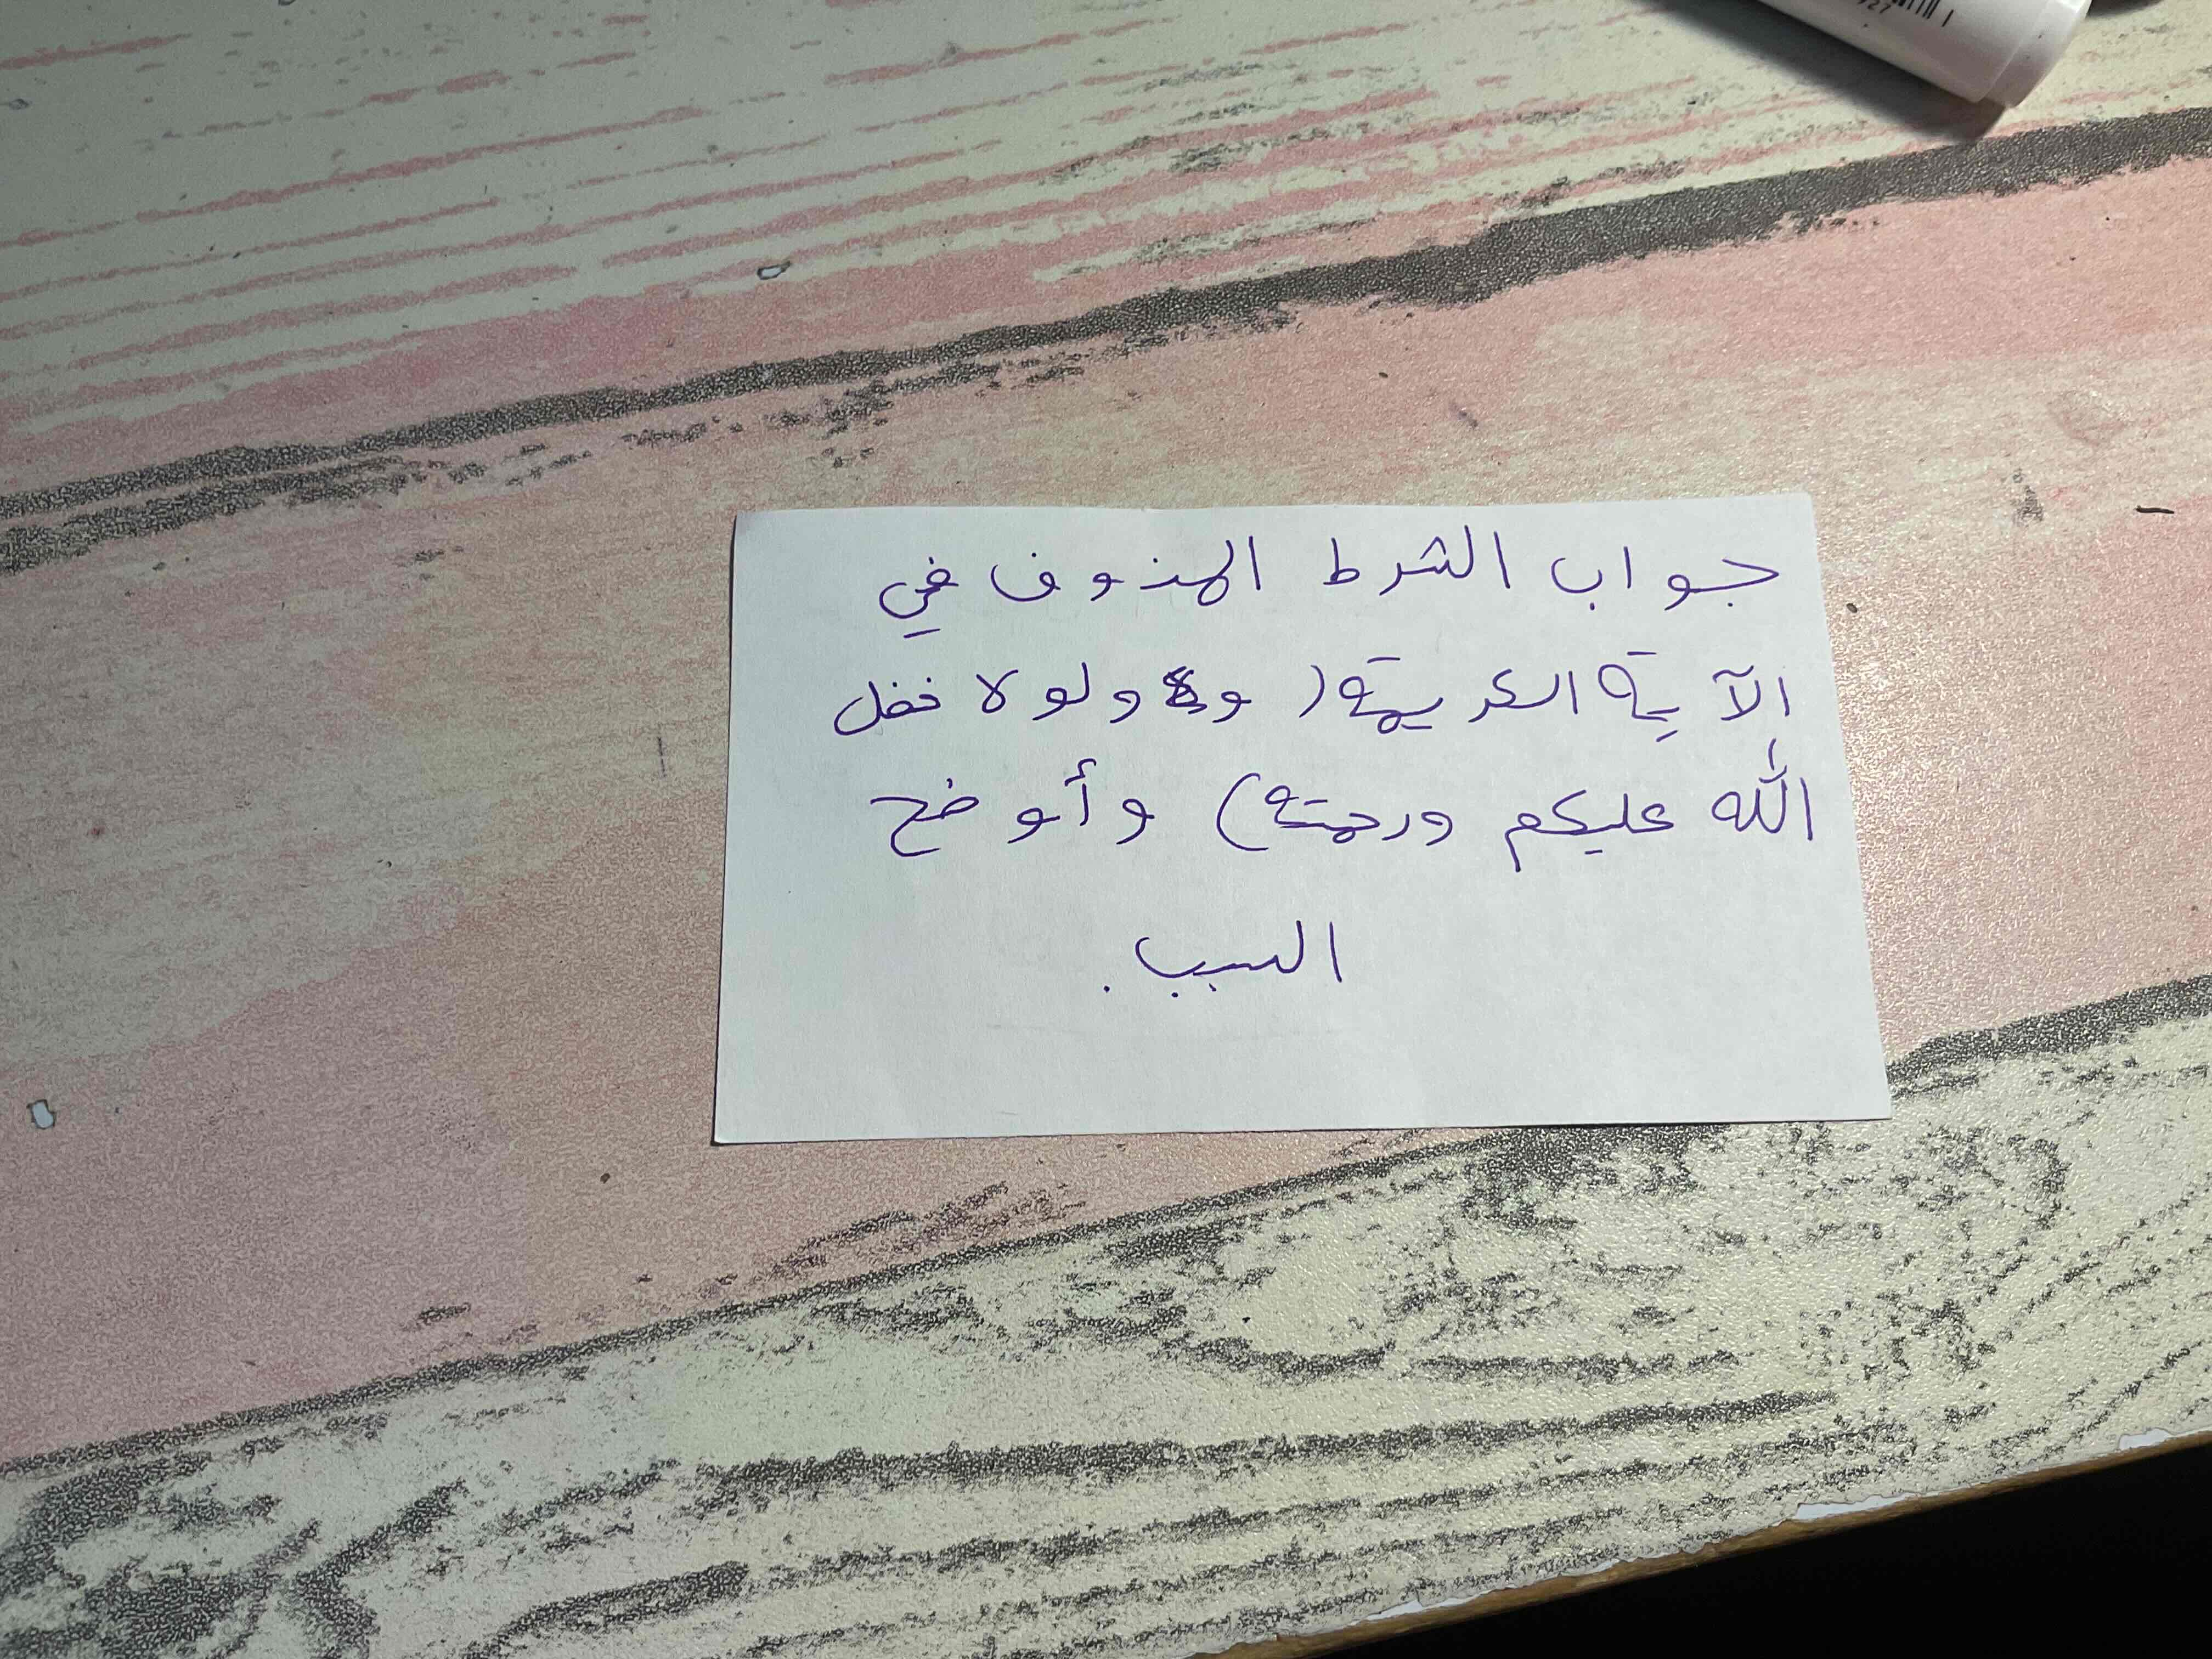 927
جواب الشرط المحذوف في
الآية الكريمة ( و ولولا فضل
الله عليكم ورحمته) وأوضح
السبب.